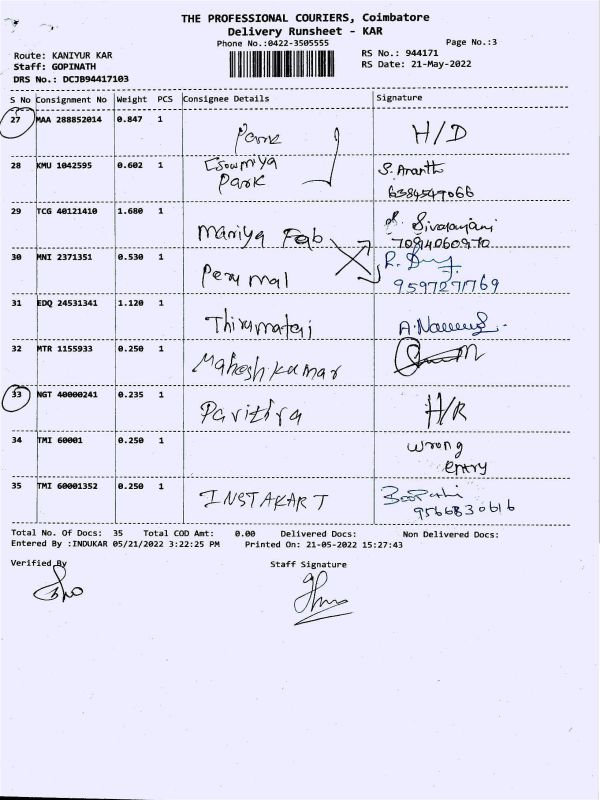 THE PROFESSIONAL COURIERS, Coimbatore
Delivery Runsheet - KAR
Phone No.:0422-3505555
Page No.:3
Route: KANIYUR KAR
RS No.: 944171
Staff: GOPINATH
RS Date: 21-May-2022
DRS No.: DCJB94417103
S No Consignment No Weight PCS Consignee Details Signature
27 MAA 288852014 0.847 1 Park H/D
28 KMU 1042595 0.602 1 Sowmiya S. Ananth
Park 6384547066
29 TCG 40121410 1.680 1 Mariya Fab Sivaranjani
7094060970
30 MNI 2371351 0.530 1 Perumal
9597271769
31 EDQ 24531341 1.120 1 Thirumalai
32 MTR 1155933 0.250 1 Mahesh kumar
33 NGT 40000241 0.235 1 Pavithra H/R
34 TMI 60001 0.250 1 wrong
entry
35 TMI 60001352 0.250 1 INSTAKART Boopathi
9566830616
Total No. Of Docs: 35 Total COD Amt: 0.00 Delivered Docs: Non Delivered Docs:
Entered By :INDUKAR 05/21/2022 3:22:25 PM Printed On: 21-05-2022 15:27:43
Verified By Staff Signature